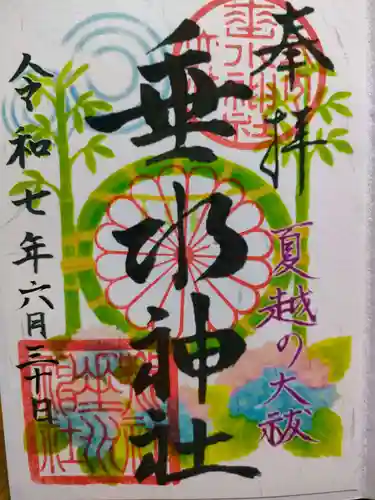 奉拝
垂水神社
夏越の大祓
令和七年六月三十日